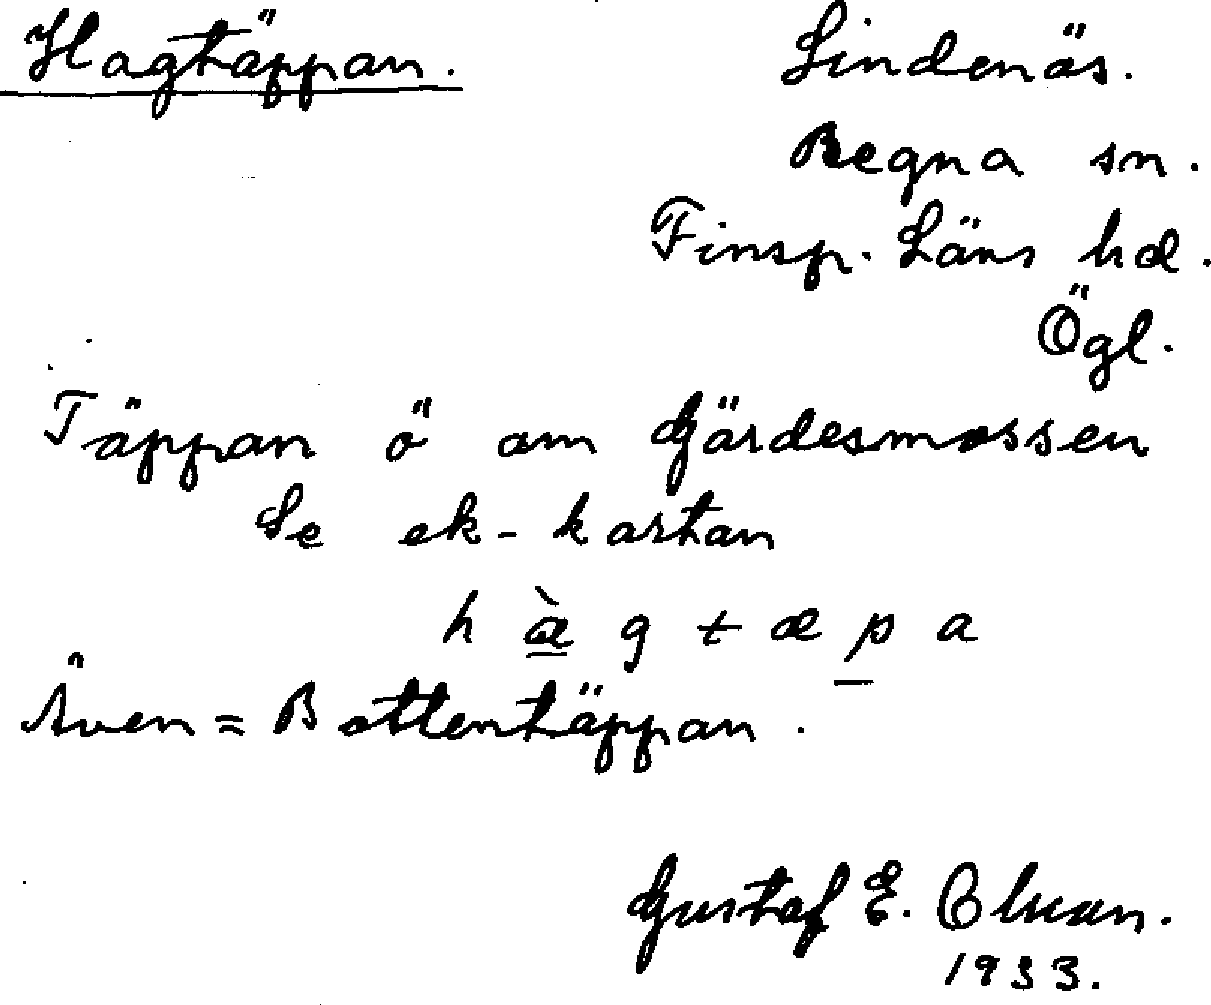 Hagtäppan.
Lindenäs.
Regna sn.
Finsp. Läns hd.
Ögl.
Täppan ö om Gärdesmossen
Se ek-kartan
h à g t æ p a
Även = Bottentäppan.
Gustaf E.
1933.